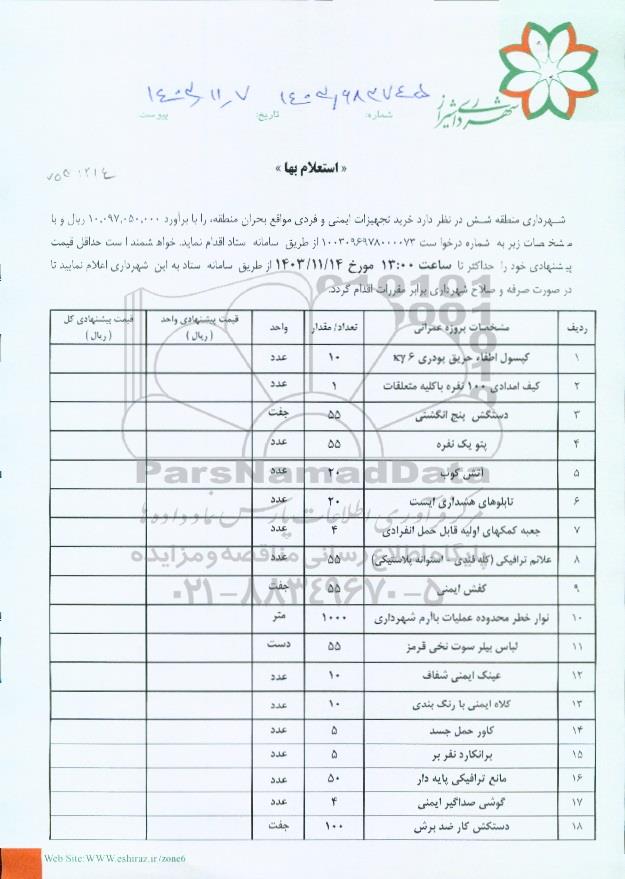 شهرداری شیراز
شماره:
تاریخ: ۱۴۰۳/۱۱/۷
پیوست
« استعلام بها »
شهرداری منطقه شش در نظر دارد خرید تجهیزات ایمنی و فردی مواقع بحران منطقه، را با برآورد ۱۰,۰۹۷,۰۵۰,۰۰۰ ریال و با
مشخصات زیر به شماره درخواست ۱۰۰۳۰۹۶۹۷۸۰۰۰۰۷۳ از طریق سامانه ستاد اقدام نماید. خواهشمند است حداقل قیمت
پیشنهادی خود را حداکثر تا ساعت ۱۳:۰۰ مورخ ۱۴۰۳/۱۱/۱۴ از طریق سامانه ستاد به این شهرداری اعلام نمایید تا
در صورت صرفه و صلاح شهرداری برابر مقررات اقدام گردد.
ردیف مشخصات پروژه عمرانی تعداد/ مقدار واحد قیمت پیشنهادی واحد ( ریال ) قیمت پیشنهادی کل ( ریال )
۱ کپسول اطفاء حریق پودری ۶ KY ۱۰ عدد
۲ کیف امدادی ۱۰۰ نفره باکلیه متعلقات ۱ عدد
۳ دستکش پنج انگشتی ۵۵ جفت
۴ پتو یک نفره ۵۵ عدد
۵ آتش کوب ۲۰ عدد
۶ تابلوهای هشداری ایست ۲۰ عدد
۷ جعبه کمکهای اولیه قابل حمل انفرادی ۴ عدد
۸ علائم ترافیکی (کله قندی - استوانه پلاستیکی) ۵۵ عدد
۹ کفش ایمنی ۵۵ جفت
۱۰ نوار خطر محدوده عملیات باآرم شهرداری ۱۰۰۰ متر
۱۱ لباس بیلر سوت نخی قرمز ۵۵ دست
۱۲ عینک ایمنی شفاف ۱۰ عدد
۱۳ کلاه ایمنی با رنگ بندی ۱۰ عدد
۱۴ کاور حمل جسد ۵ عدد
۱۵ برانکارد نفر بر ۵ عدد
۱۶ مانع ترافیکی پایه دار ۵۰ عدد
۱۷ گوشی صداگیر ایمنی ۴ عدد
۱۸ دستکش کار ضد برش ۱۰۰ جفت
ParsNamadData
مرکز فرآوری اطلاعات پارس نماد داده ها
پایگاه اطلاع رسانی مناقصه و مزایده
۰۲۱-۸۸۳۴۹۶۷۰-۵
Web Site:WWW.eshiraz.ir/zone6